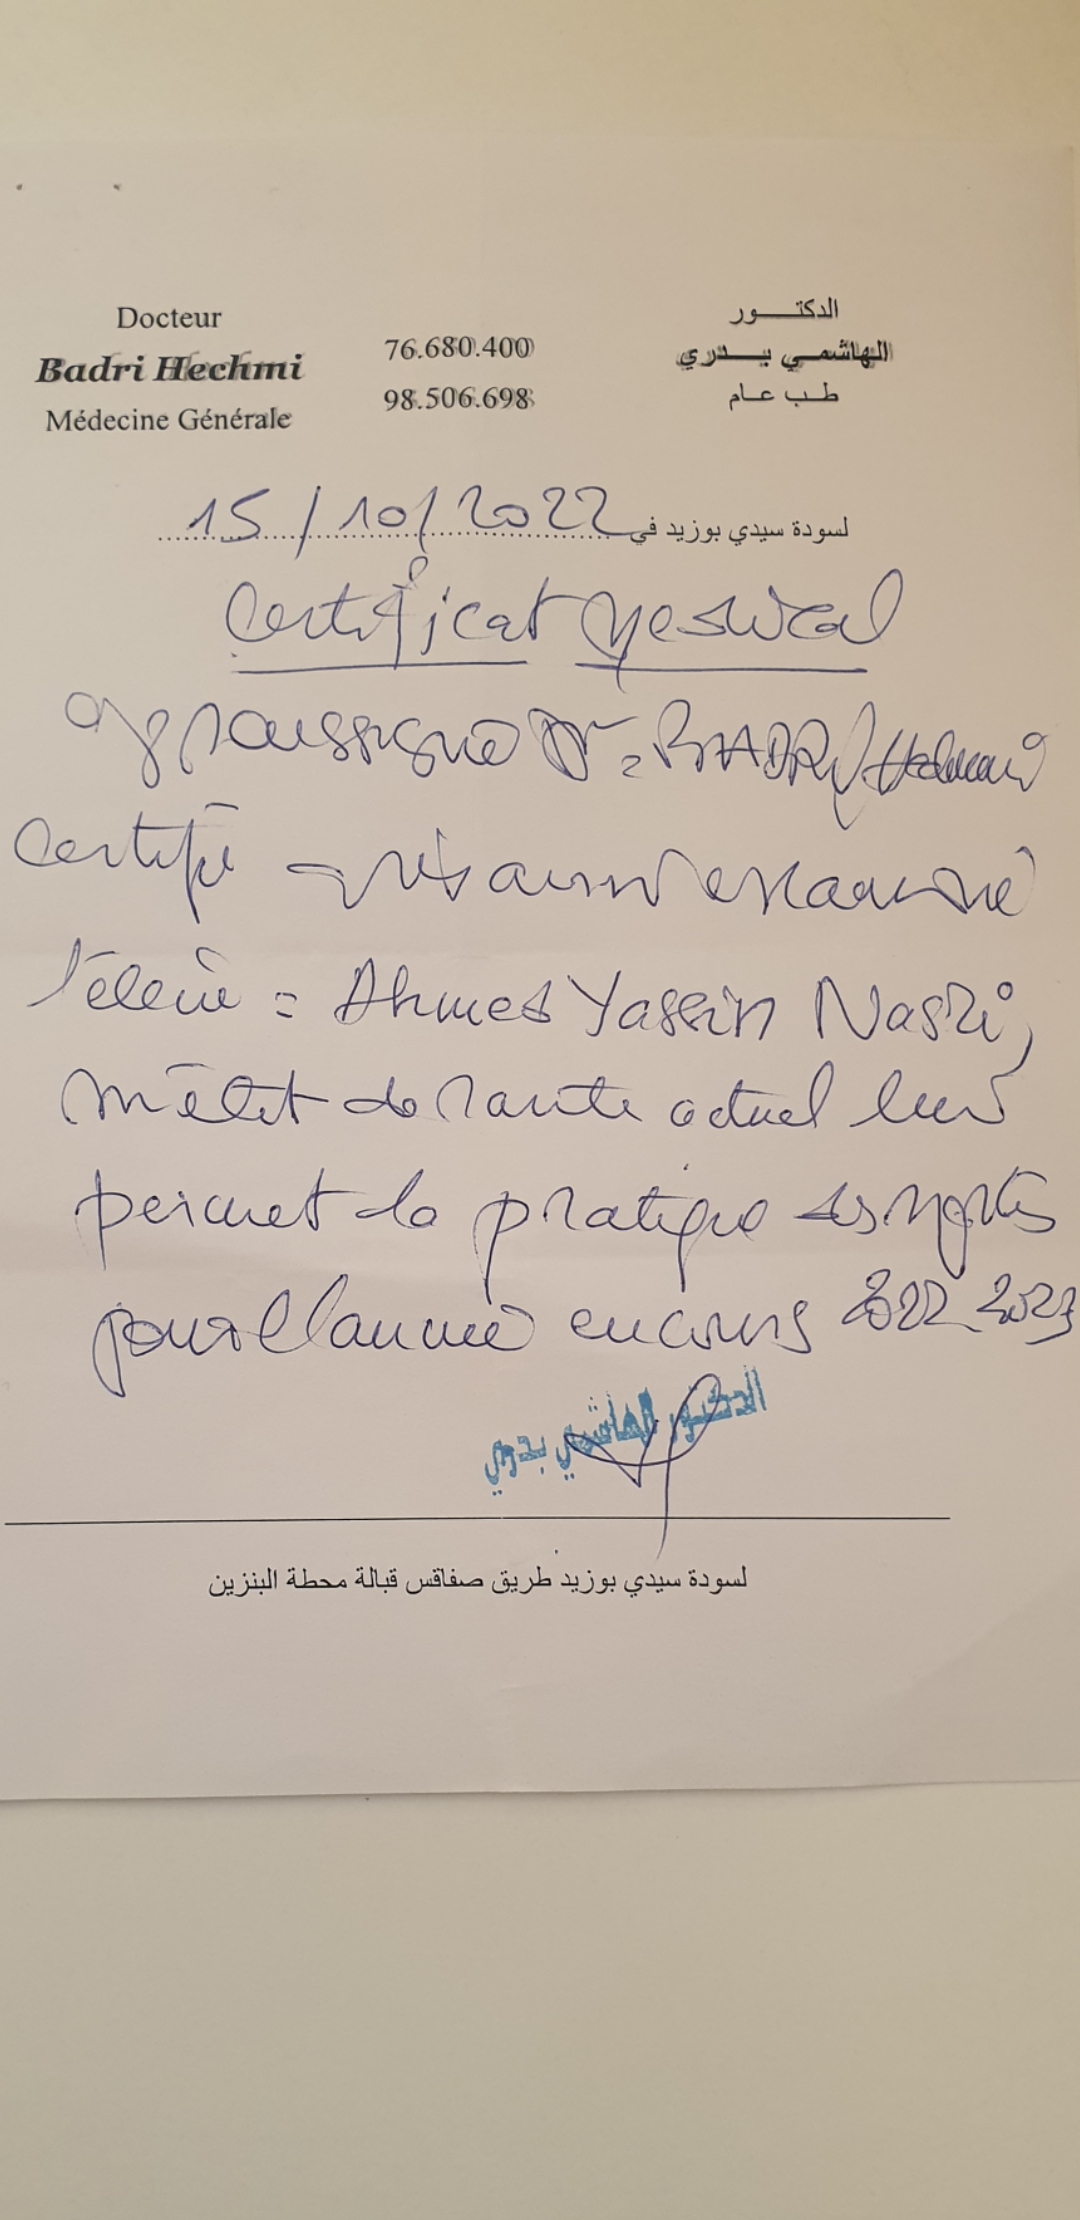 Docteur
Badri Hechmi
Médecine Générale
76.680.400
98.506.698
الدكتـــور
الهاشمي بـدري
طـب عـام
لسودة سيدي بوزيد في 15/10/2022
Certificat Medical
Je soussigné Dr: BADRI Hechmi
Certifie avoir examiné
l'élève : Ahmed Yassin Nasri,
état de santé actuel lui
permet la pratique des sports
pour l'année en cours 2022_2023
الدكتور الهاشمي بدري
لسودة سيدي بوزيد طريق صفاقس قبالة محطة البنزين